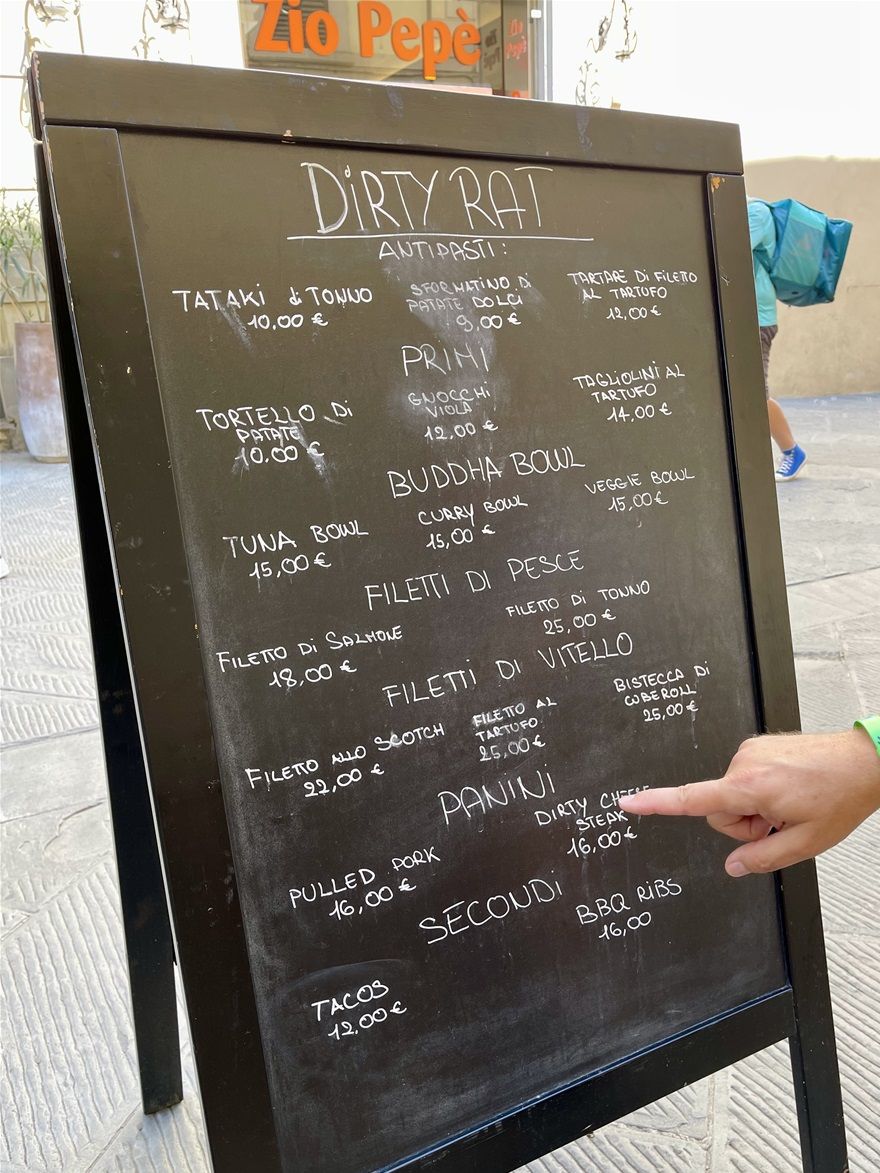 Zio Pepè
Zio
Pepè
DiRTY RAT
ANTIPASTI:
TATAKi di TONNO
10,00 €
SFORMATINO Di
PATATE DOLCI
9,00 €
TARTARE Di FILETTO
AL TARTUFO
12,00 €
PRIMI
TORTELLO Di
PATATE
10,00 €
GNOCCHi
VIOLA
12,00 €
TAGLIOLINI AL
TARTUFO
14,00 €
BUDDHA BOWL
TUNA BOWL
15,00 €
CURRY BOWL
15,00 €
VEGGIE BOWL
15,00 €
FILETTI DI PESCE
FILETTO Di SALMONE
18,00 €
FILETTO Di TONNO
25,00 €
FILETTi Di VITELLO
FILETTO ALLO SCOTCH
22,00 €
FILETTO AL
TARTUFO
25,00 €
BISTECCA Di
CUBEROLL
25,00 €
PANiNi
PULLED PORK
16,00 €
DIRTY CHEESE
STEAK
16,00 €
SECONDi
TACOS
12,00 €
BBQ RiBS
16,00